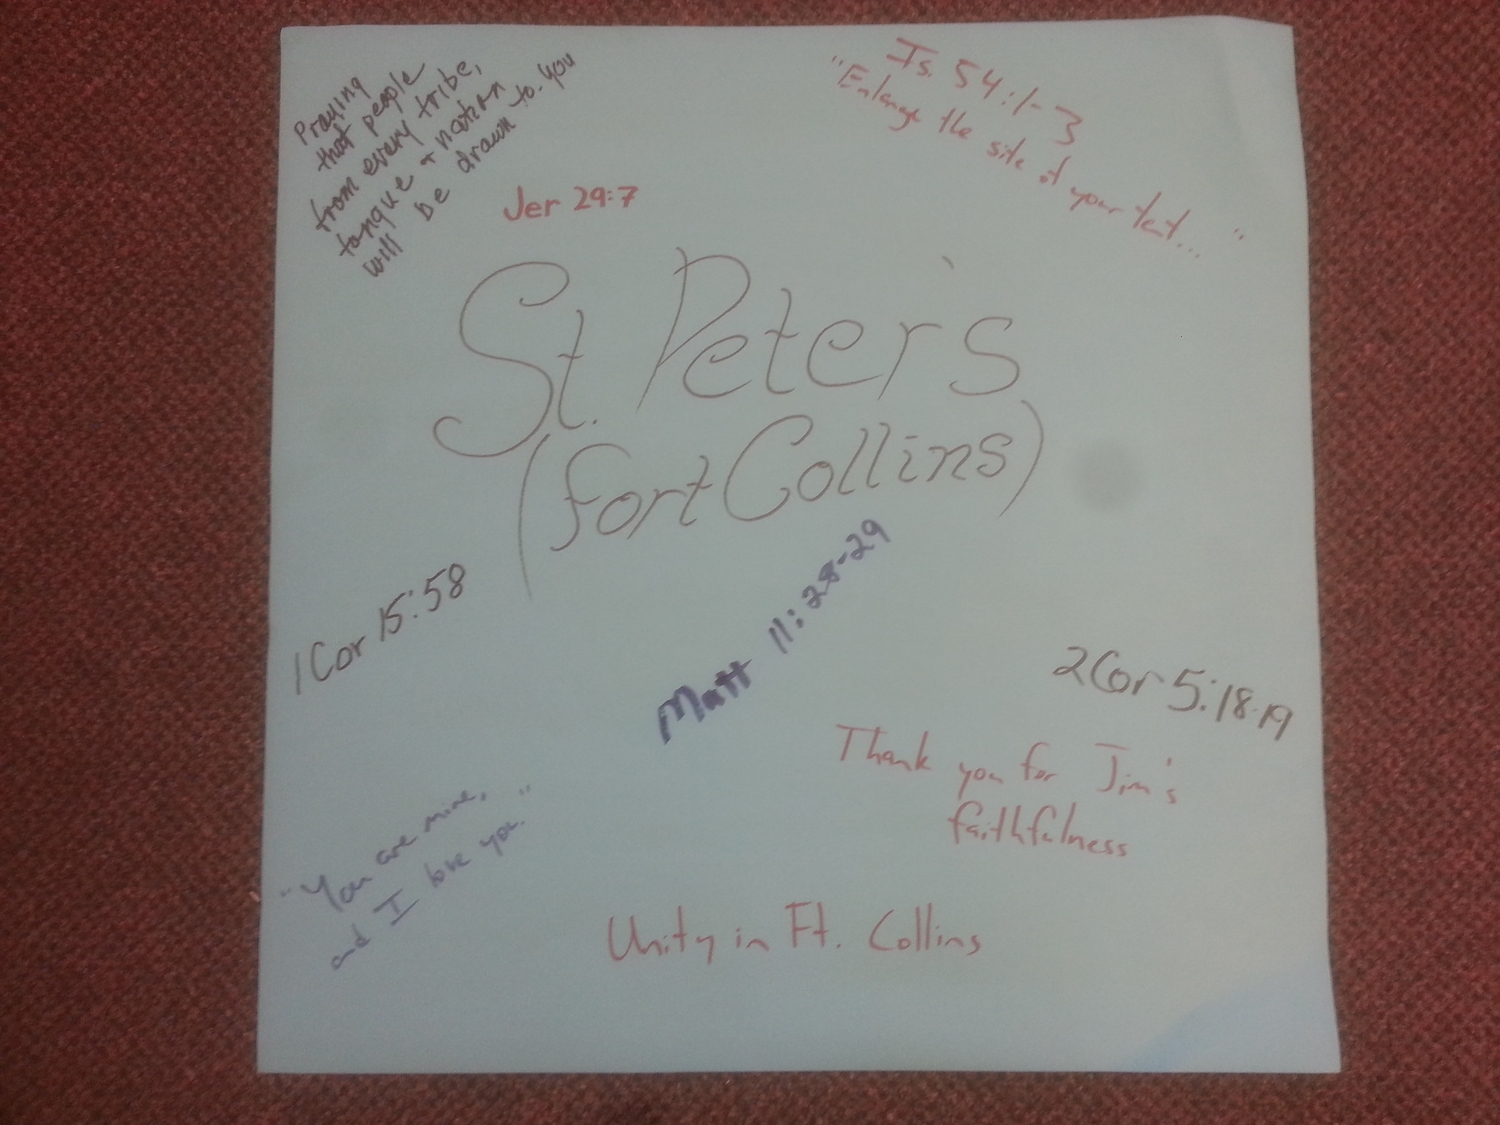 Praying
that people
from every tribe,
tongue + nation
will be drawn to you
Is. 54:1-3
"Enlarge the site of your tent... "
Jer 29:7
St. Peter's
(fort Collins)
1 Cor 15:58
Matt 11:28-29
2 Cor 5:18-19
Thank you for Jim's
faithfulness
"You are mine,
and I love you."
Unity in Ft. Collins